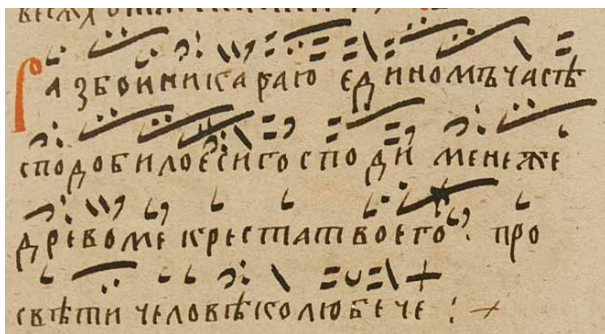 Разбоиника раю единомъ часѣ
сподобилоеси господи менеже
древоме креста твоего про
свѣти человѣколюбече :